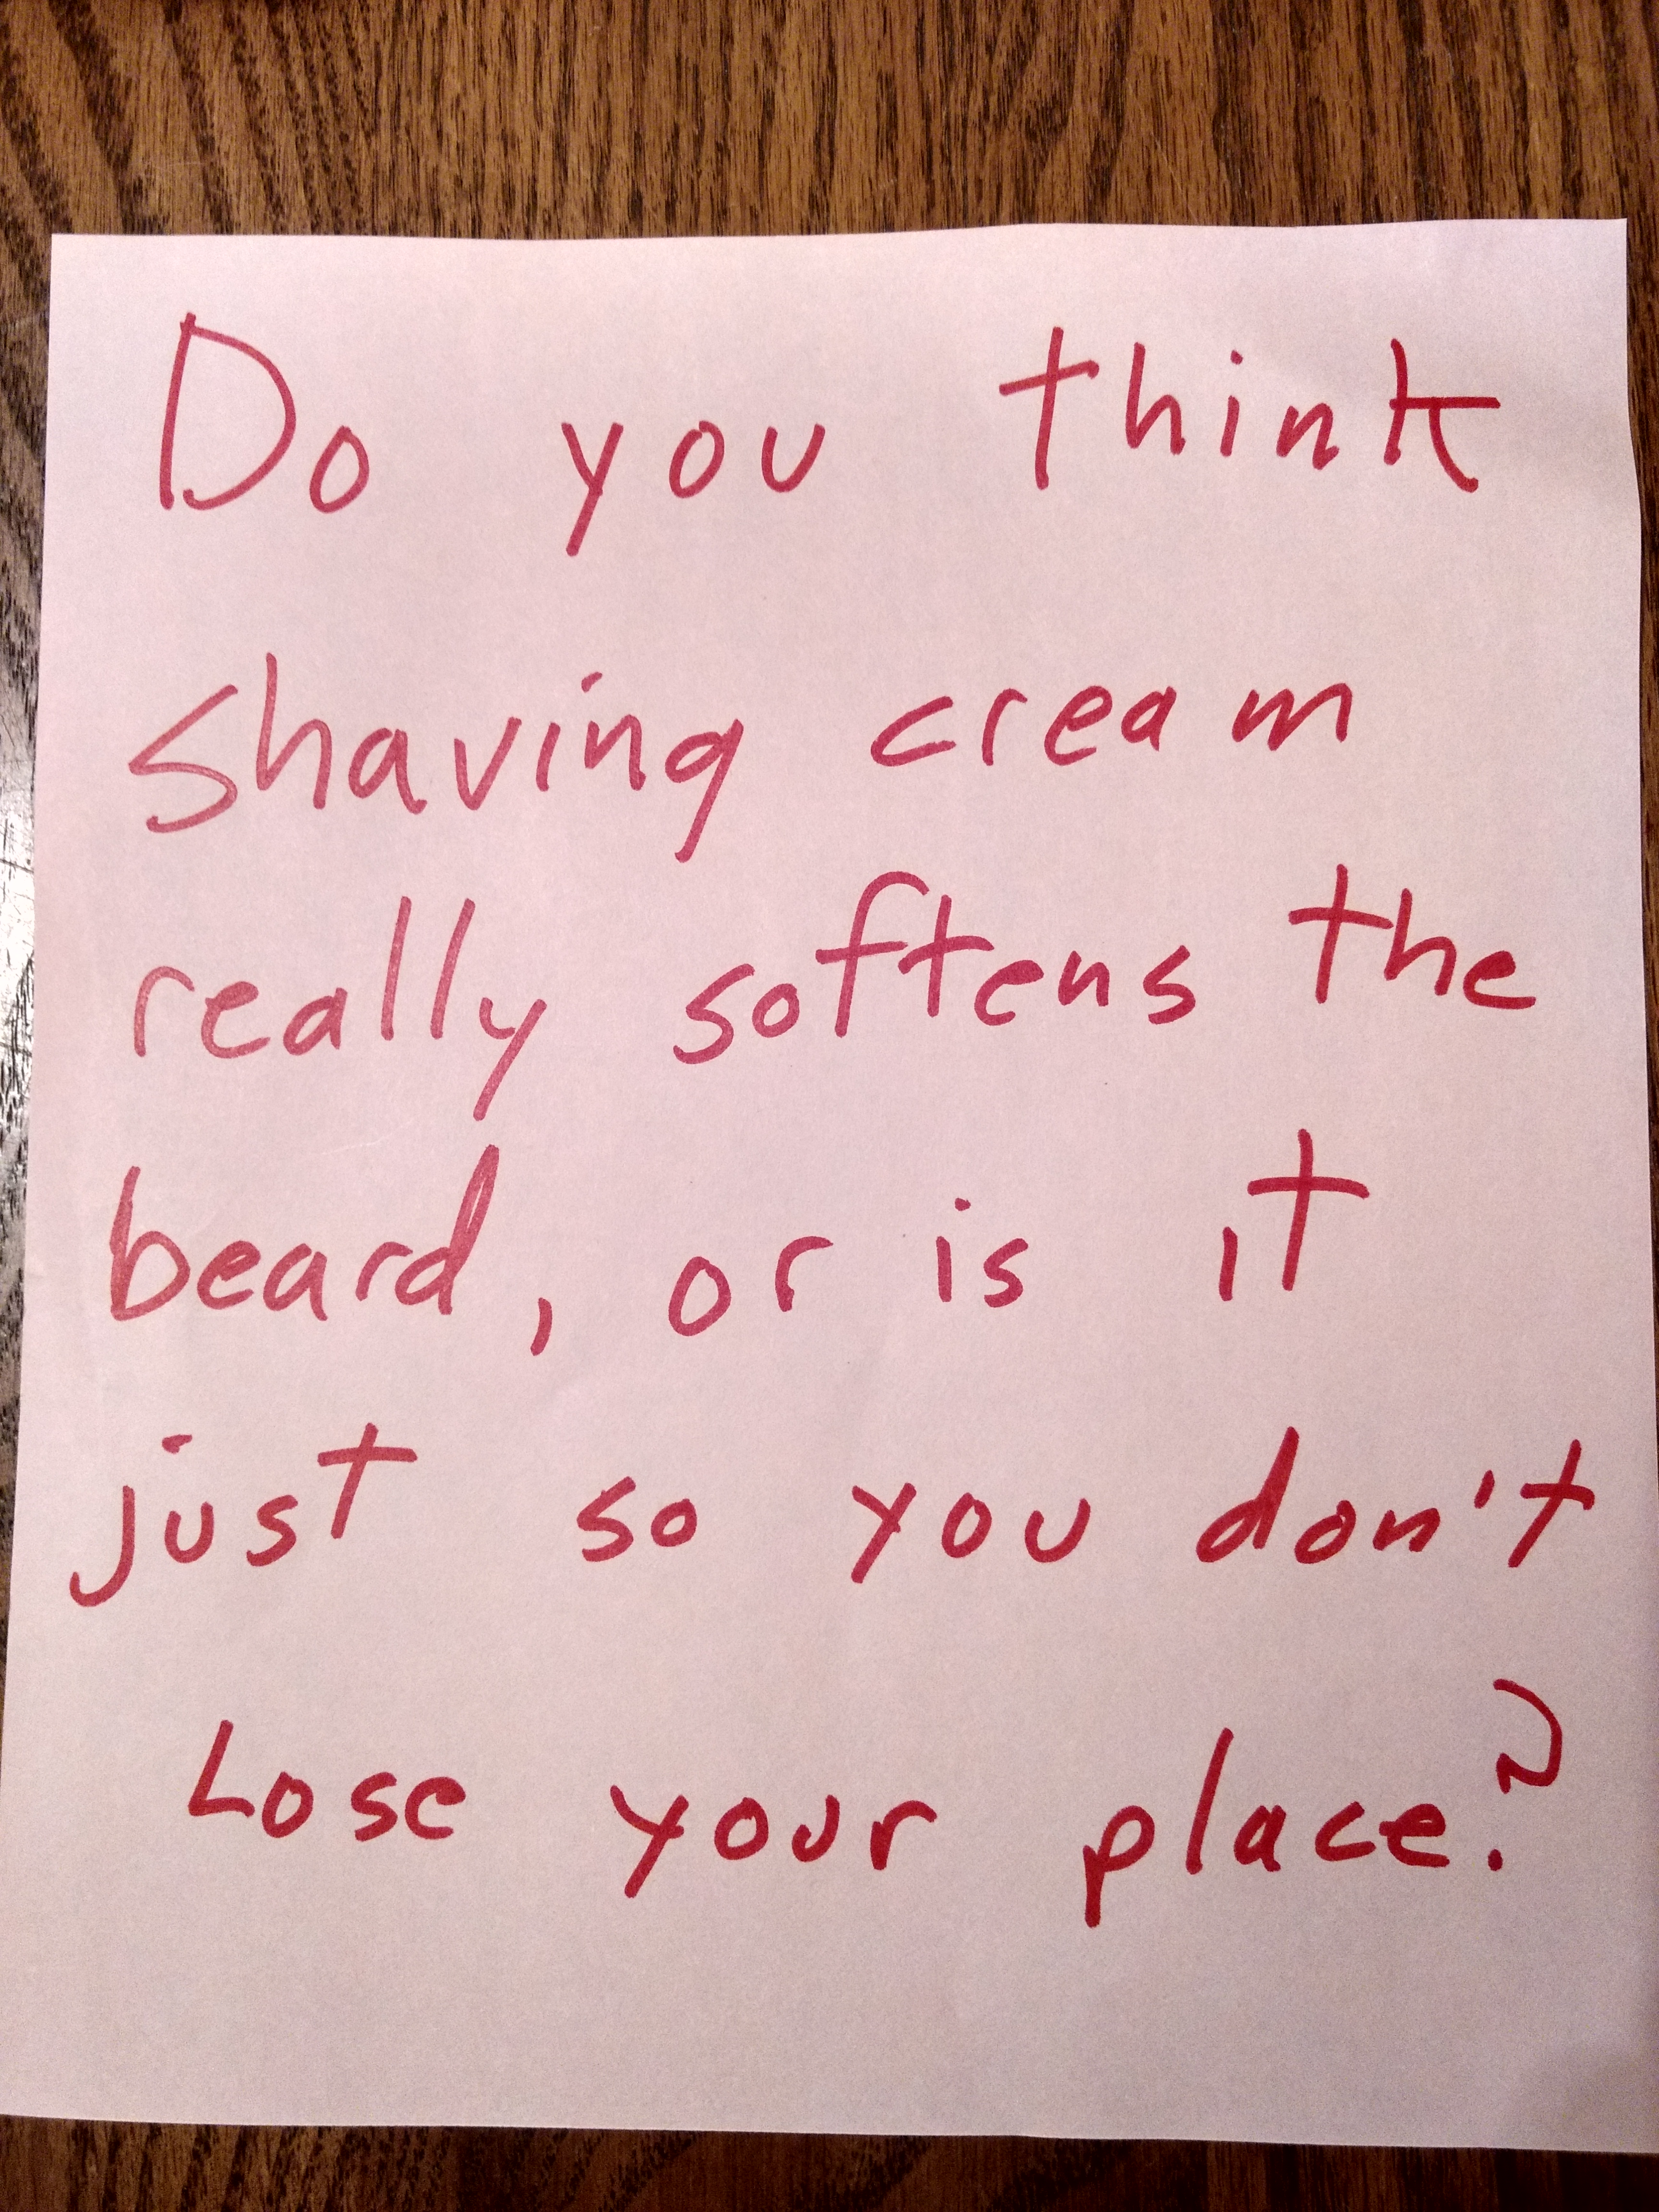 Do you think
shaving cream
really softens the
beard, or is it
just so you don't
Lose your place?